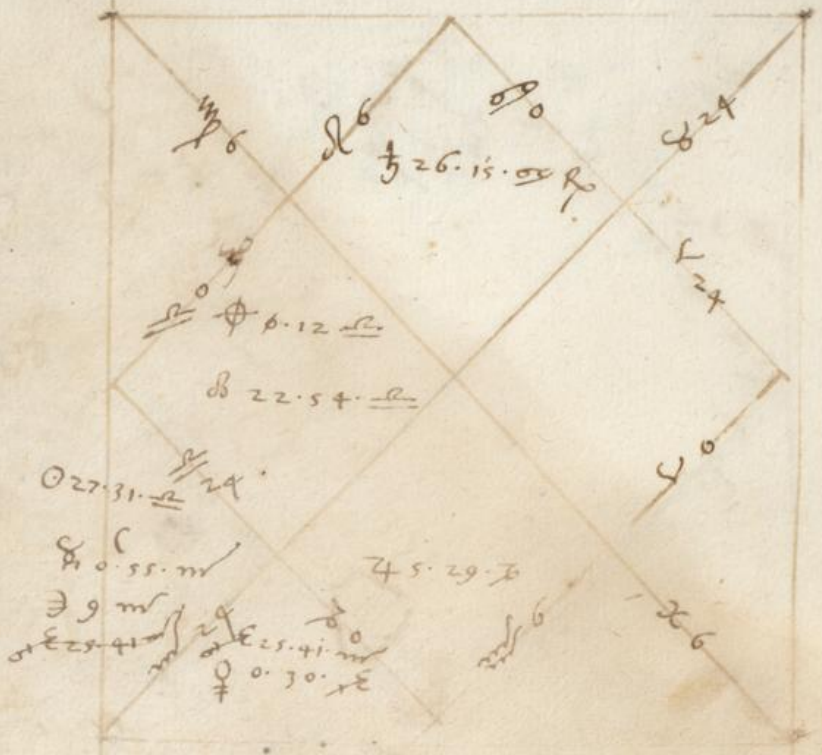 ♍ 6
♌ 6
♋ 0
♉ 24
♄ 26·15·♋ ℞
♈ 24
♎ 0
⊕ 0·12 ♎
☊ 22·54·♎
♈ 0
♎ 24
☉ 27·31·♎
0·55·♏
☽ 9 ♏
25·41
♏ 24
♂ 25·41·♏
♀ 0·30·♐
♑ 0
♃ 5·29·♑
♒ 6
♓ 6